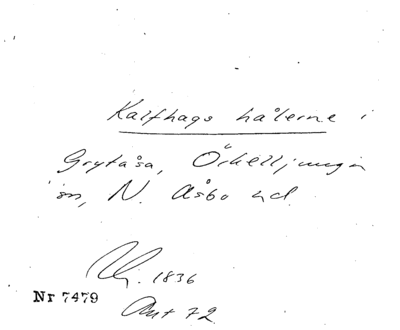 Kalfhags hålerne i
Grytåsa, Örkelljunga
sn, N. Åsbo hd.
1836
Nr 7479
Avt 72